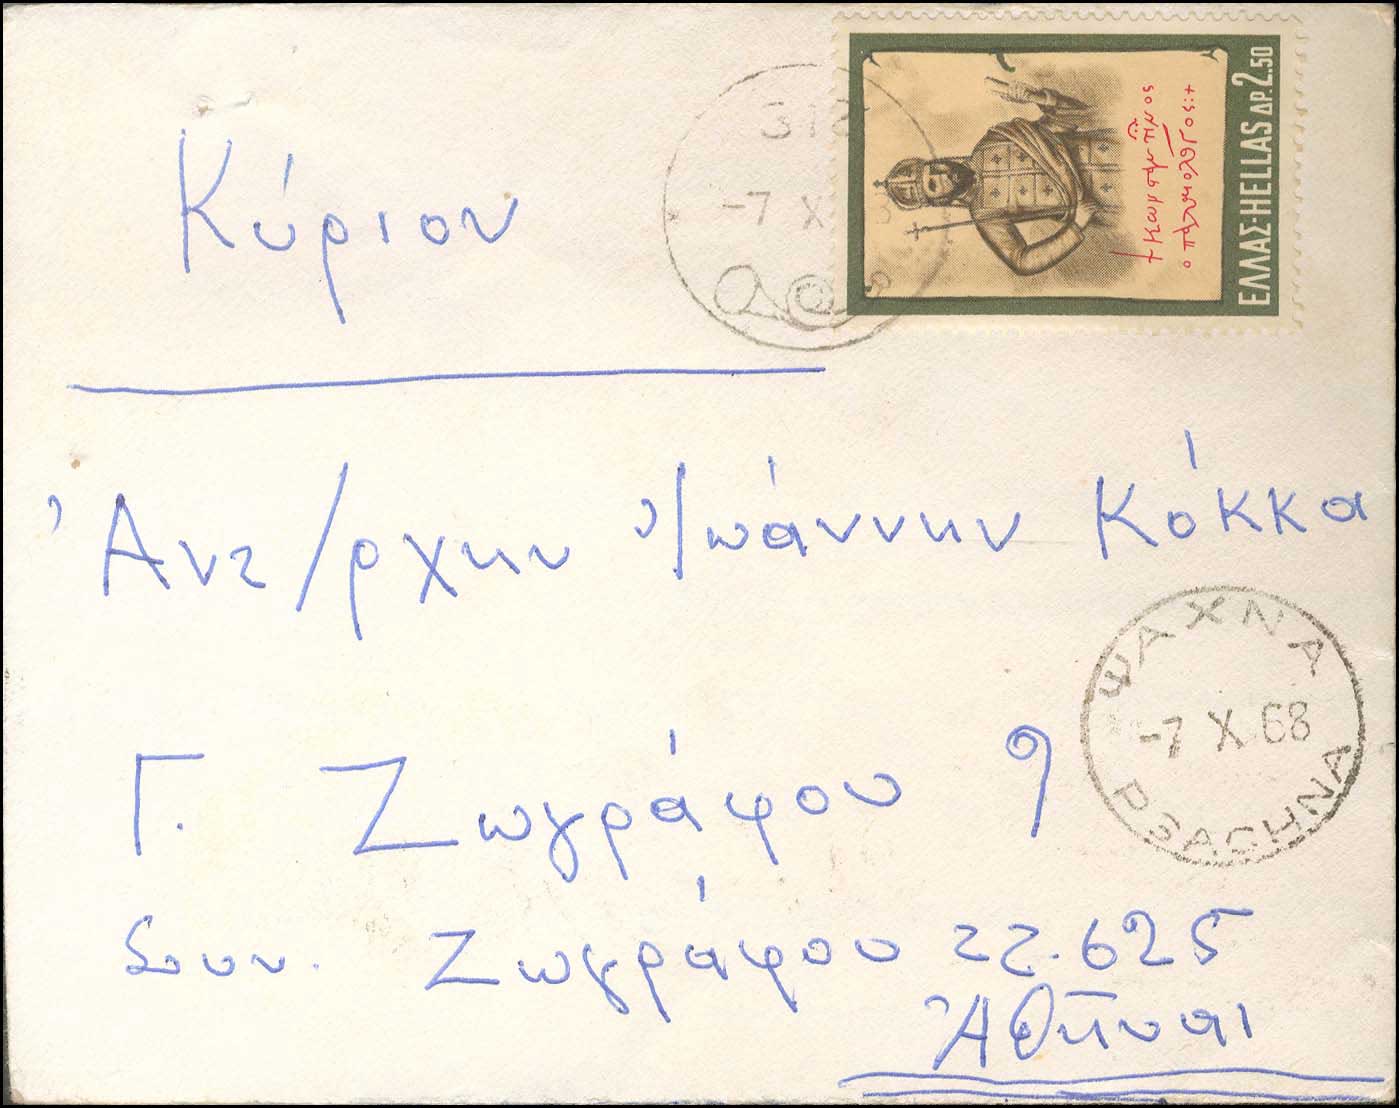 Κύριον
Ἀντ/ρχην Ἰωάννην Κόκκα
Γ. Ζωγράφου 9
Συν. Ζωγράφου 22.625
Ἀθῆναι
ΕΛΛΑΣ-HELLAS ΔΡ. 2.50
-7 X
ΨΑΧΝΑ
-7 X 68
PSACHNA